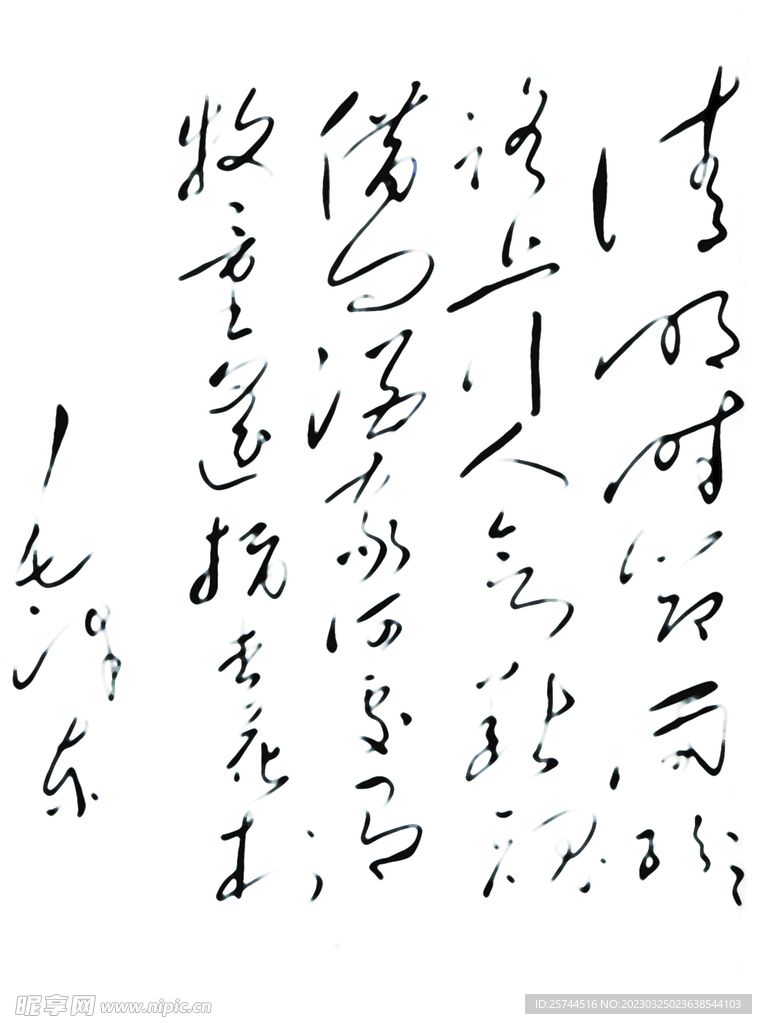 清明时节雨纷纷
路上行人欲断魂
借问酒家何处有
牧童遥指杏花村
毛泽东
昵享网 www.nipic.cn
ID:25744516 NO:20230325023638544103